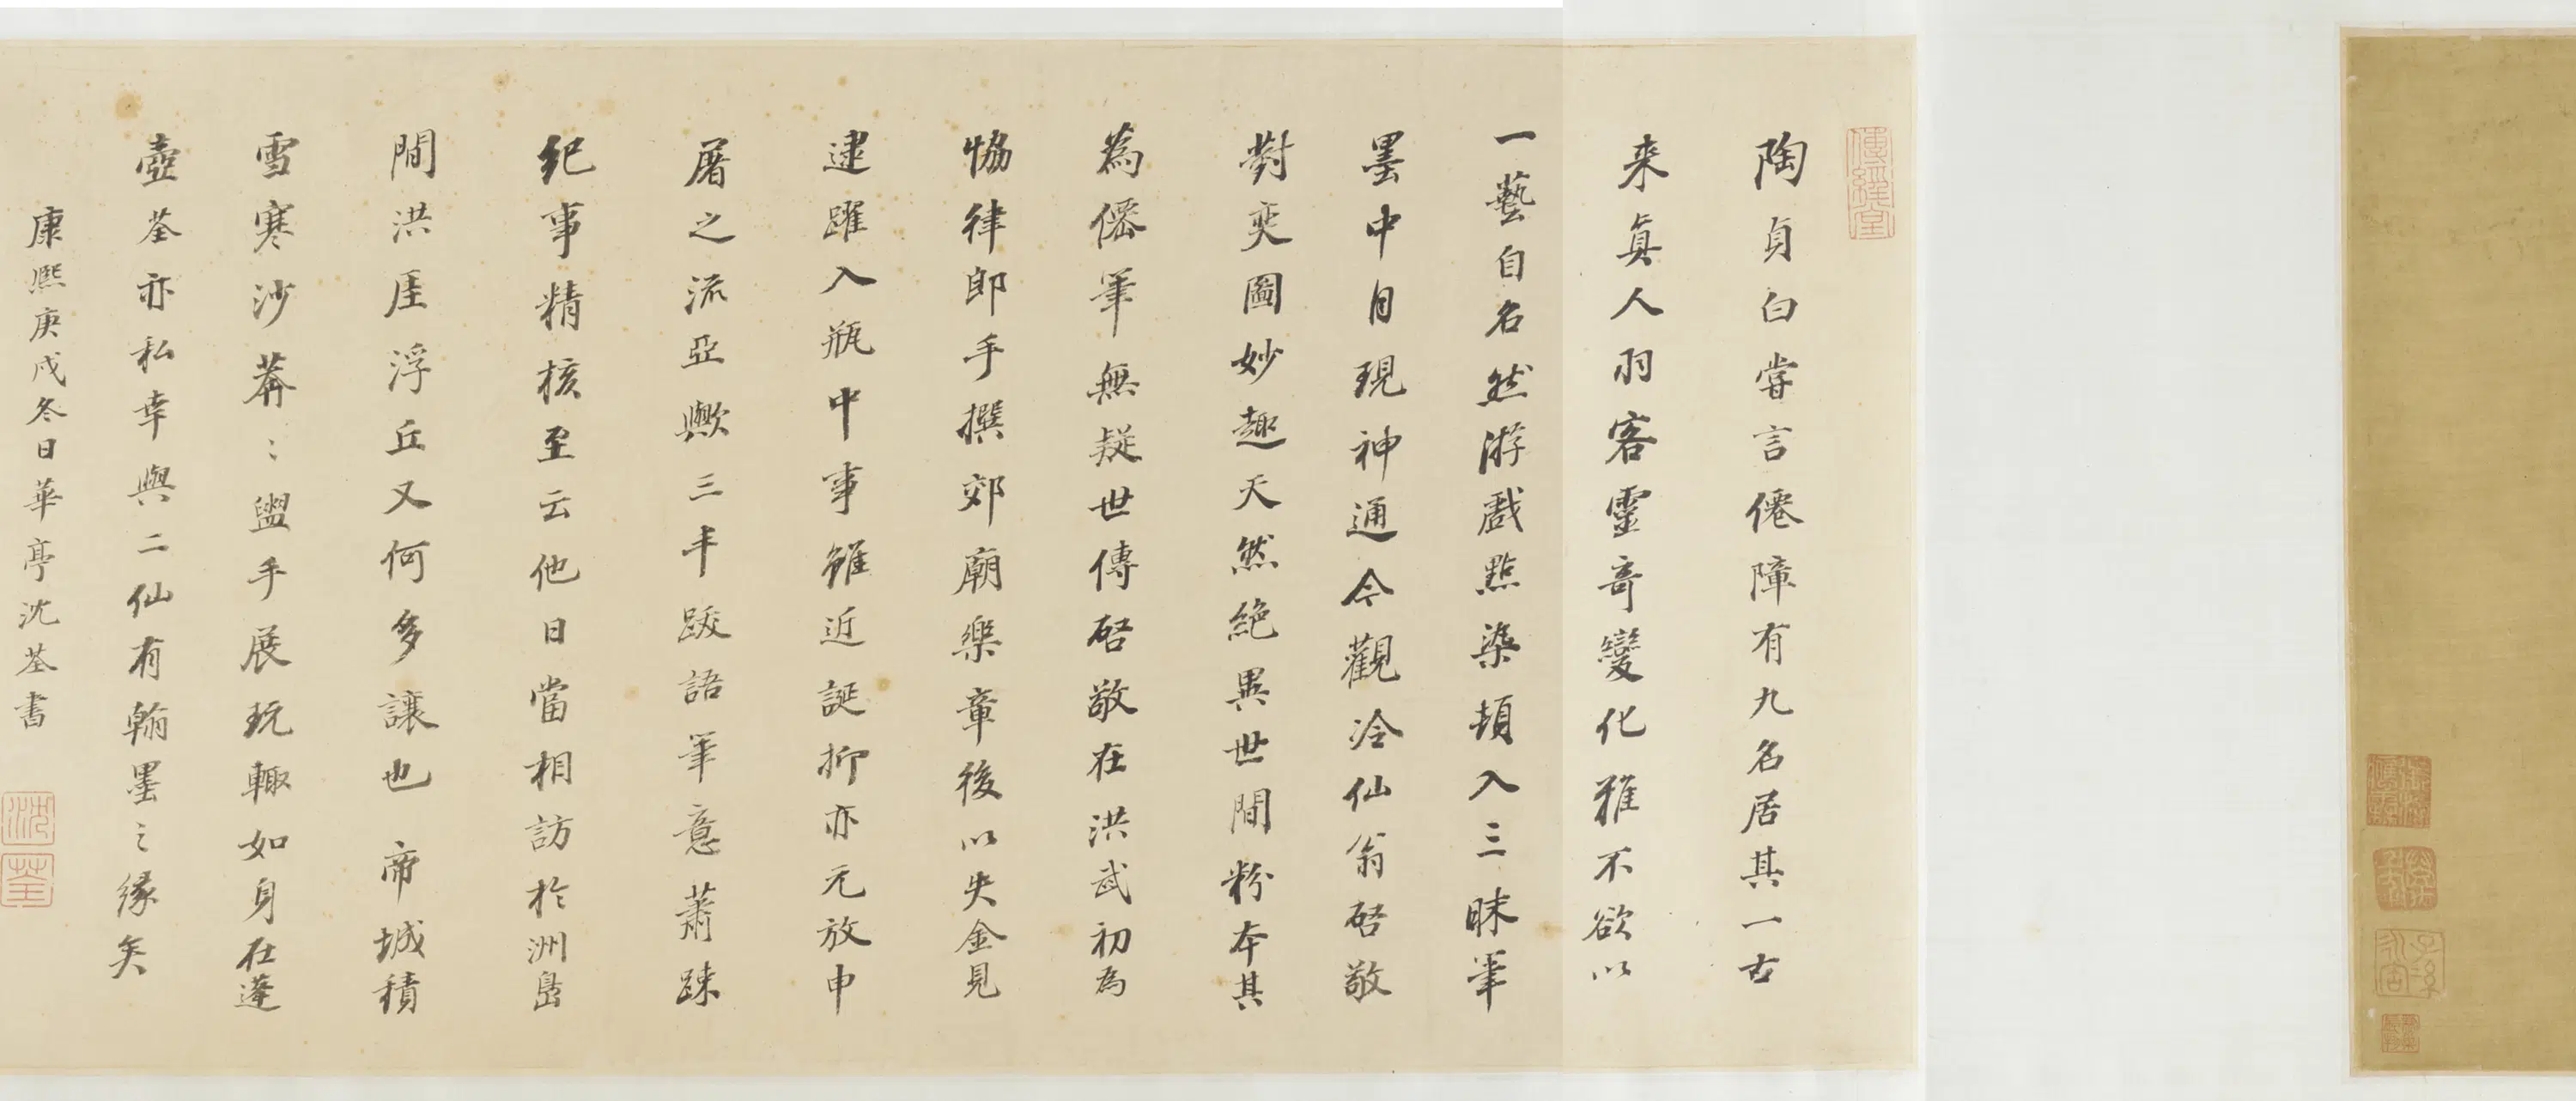 傳經堂
陶貞白嘗言僊障有九名居其一古
来真人羽客靈奇變化雅不欲以
一藝自名然游戲點染頓入三昧筆
墨中自現神通今觀冷仙翁啓敬
對奕圖妙趣天然絶異世間粉本其
為僊筆無疑世傳啓敬在洪武初為
恊律郎手撰郊廟樂章後以失金見
逮躍入瓶中事雖近誕抑亦元放申
屠之流亞歟三丰跋語筆意蕭踈
紀事精核至云他日當相訪於洲島
間洪厓浮丘又何多讓也帝城積
雪寒沙莾〻盥手展玩輙如身在蓬
壺荃亦私幸與二仙有翰墨之緣矣
康熙庚戌冬日華亭沈荃書
沈荃